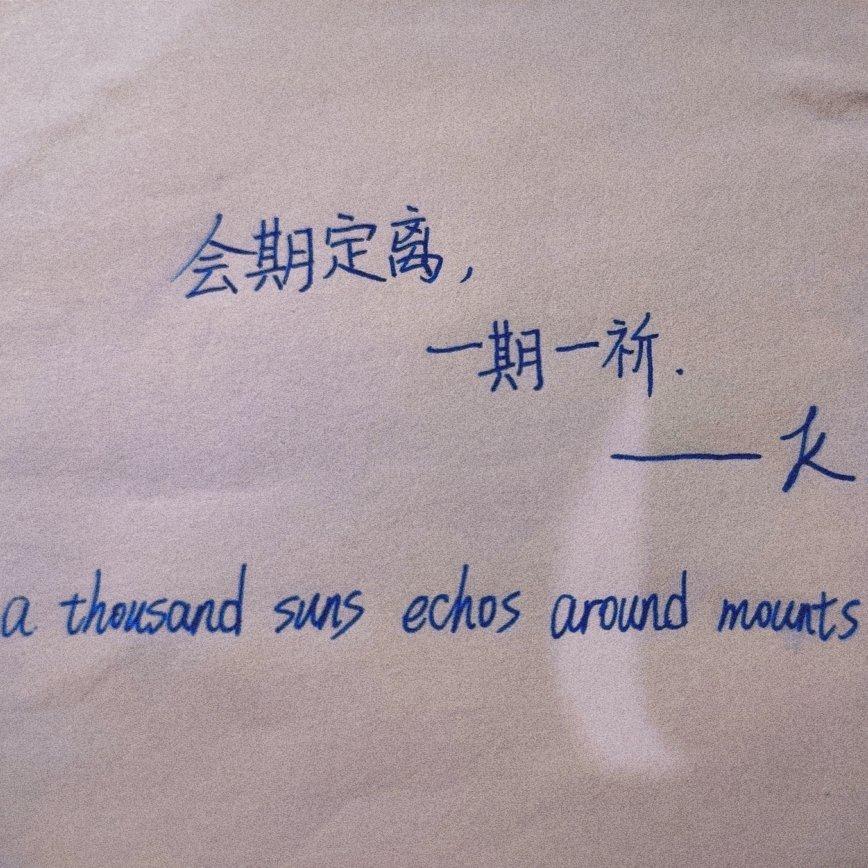 会期定离，
一期一祈.
—— K
a thousand suns echos around mounts